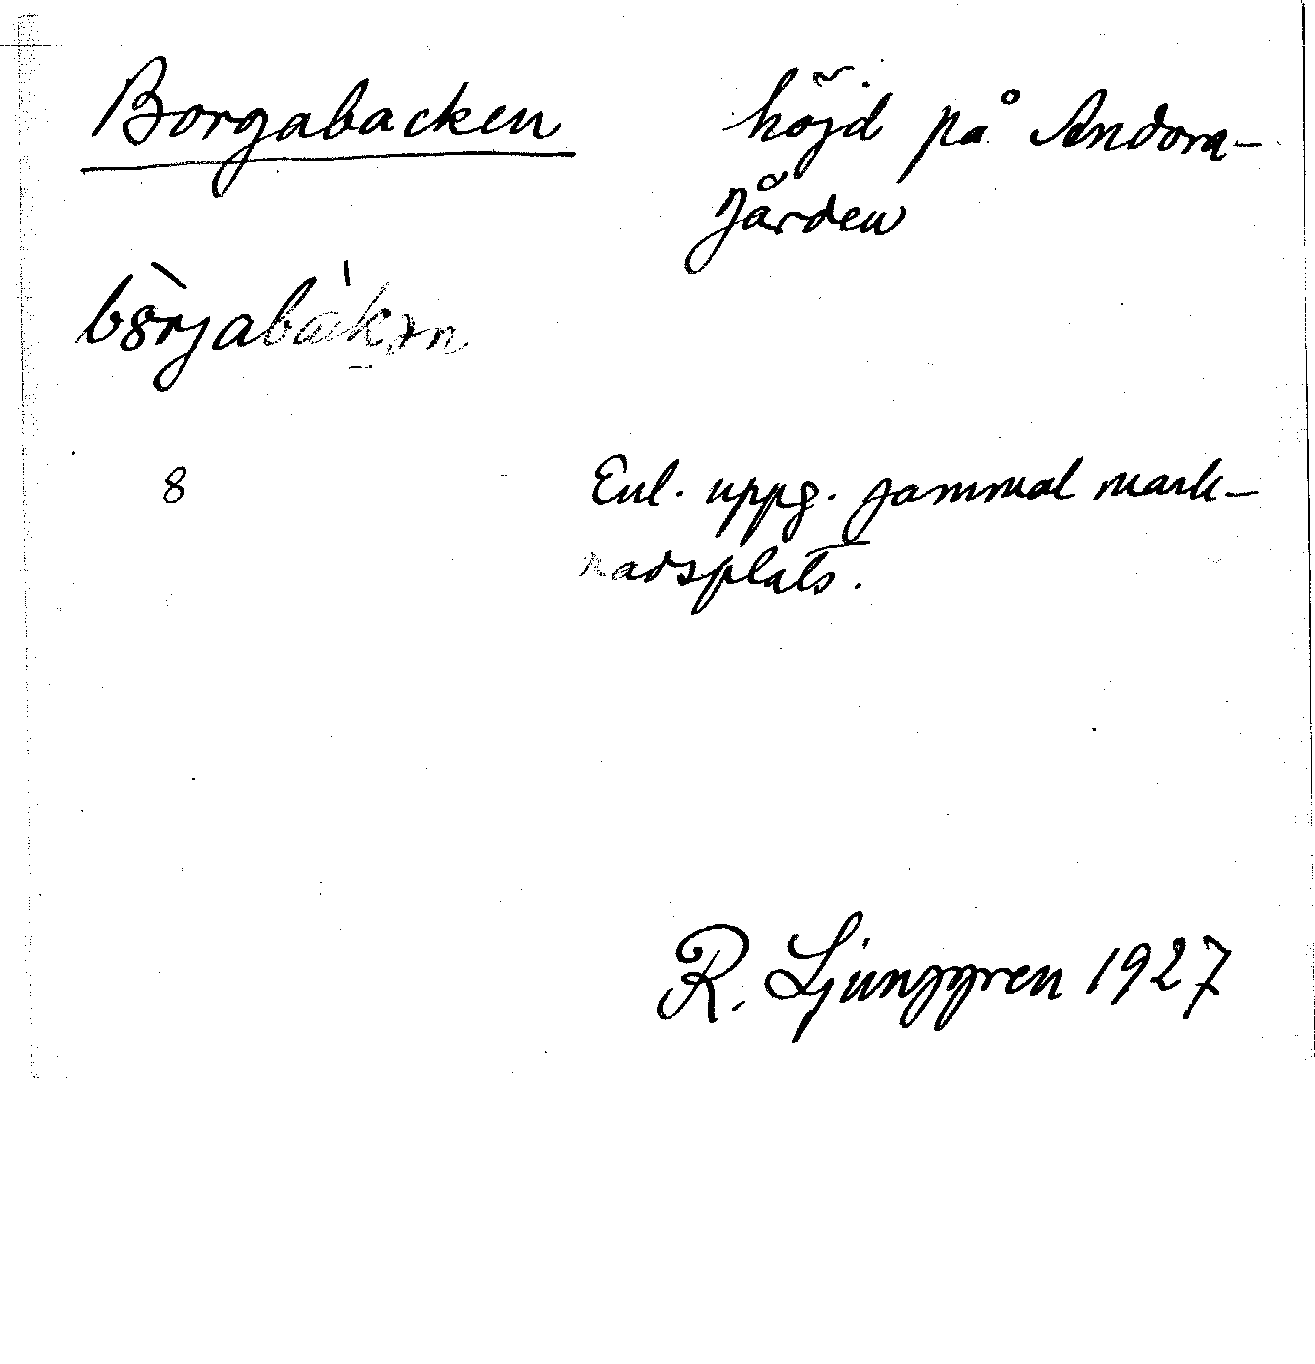 Borgabacken
höjd på Andora-
gården
bòrjabákən
8
Enl. uppg. gammal mark-
nadsplats.
R. Ljunggren 1927